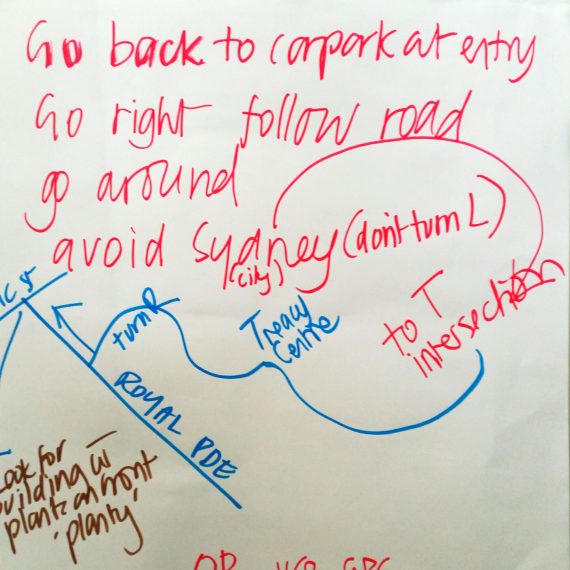 Go back to carpark at entry
Go right follow road
go around
avoid Sydney (don't turn L)
(city)
to T
intersection
Treacy
Centre
turn R
ROYAL PDE
Look for
building w
plants on front
'planty'
OR use GPS